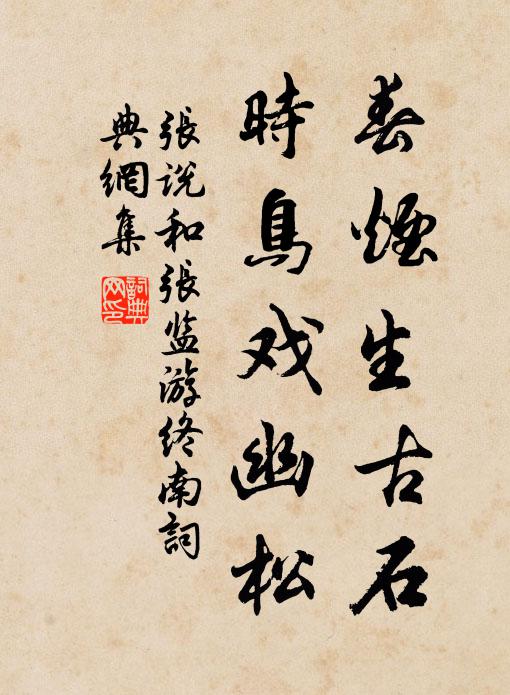 春煙生古石
時鳥戏幽松
張说和張监游终南詞
典網集
詞典
网印